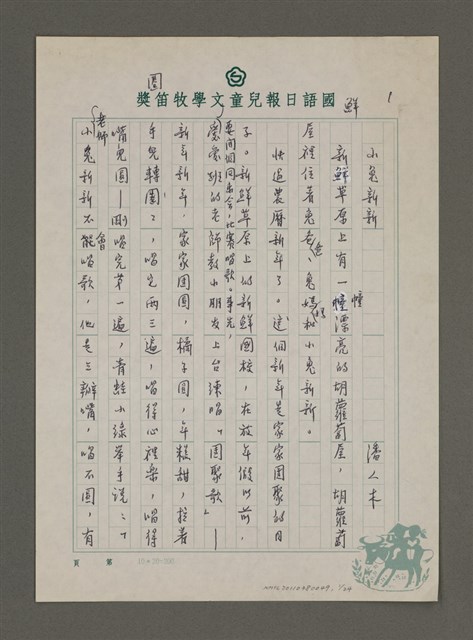 國語日報兒童文學牧笛獎
1
小兔新新
潘人木
新鮮草原上有一幢漂亮的胡蘿蔔屋,胡蘿蔔
屋裡住著兔爸爸、兔媽媽和小兔新新。
快過農曆新年了。這個新年是家家團聚的日
子。新鮮草原上的新鮮國校,在放年假以前,
要開個同樂會,比賽唱歌。事先,
愛愛班的老師教小朋友上台練唱「團聚歌」—
新年新年,家家團圓,橘子圓,年糕甜,拉著
手兒轉圈圈,唱完兩三遍,唱得心裡樂,唱得
嘴兒圓—剛唱完第一遍,青蛙小綠舉手說:「
老師
小兔新新不會唱歌,他是三瓣嘴,唱不圓,有
第 頁